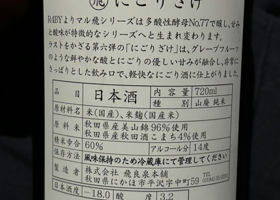 飛 にごりざけ
R4BYよりマル飛シリーズは多酸性酵母No.77で醸し、甘み
と酸味が特徴的なシリーズへと生まれ変わります。
ラストをかざる第六弾の「にごりざけ」は、グレープフルーツ
のような鮮やかな酸とにごりの優しい甘みが融合し、非常に
さっぱりとした飲み口で、軽快なにごり酒に仕上がりました。
日本酒
内容量 720ml
種別 山廃 純米
原材料名 米(国産)、米麹(国産)
原料米 秋田県産美山錦96%使用
秋田県産秋田酒こまち4%使用
精米歩合 60% アルコール分 14度
保存方法 風味保持のため冷蔵庫にて管理してください
製造者 株式会社 飛良泉本舗
秋田県にかほ市平沢字中町59
日本酒度 －18.0 酸度 3.2